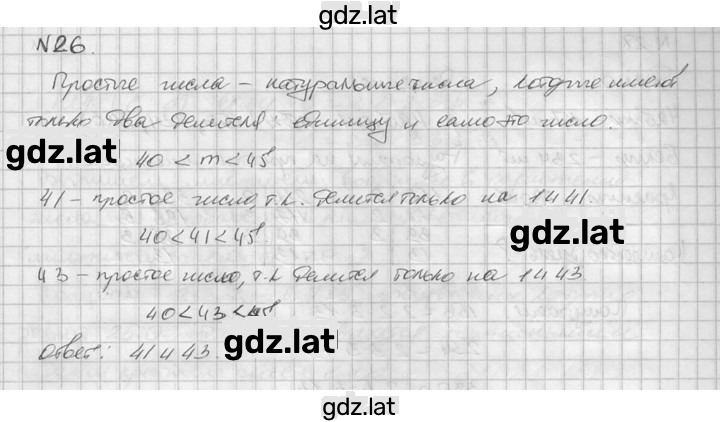 gdz.lat
№26.
Простые числа – натуральные числа, которые имеют
только два делителя единицу и само это число.
gdz.lat
40 < m < 45
41 – простое число, т.к. делится только на 1 и 41.
40 < 41 < 45
gdz.lat
43 – простое число, т.к делится только на 1 и 43
40 < 43 < 45
gdz.lat
Ответ: 41 и 43.
gdz.lat